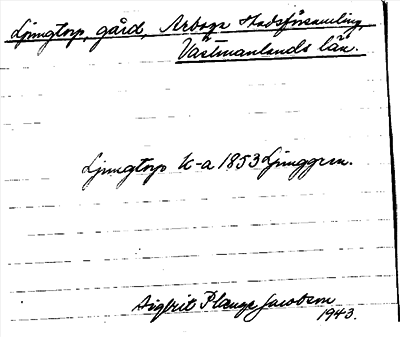 Ljungtorp, gård, Arboga Stadsförsamling,
Västmanlands län.
Ljungtorp K-a 1853 Ljunggren.
Sigbrit Plænge Jacobson
1943.